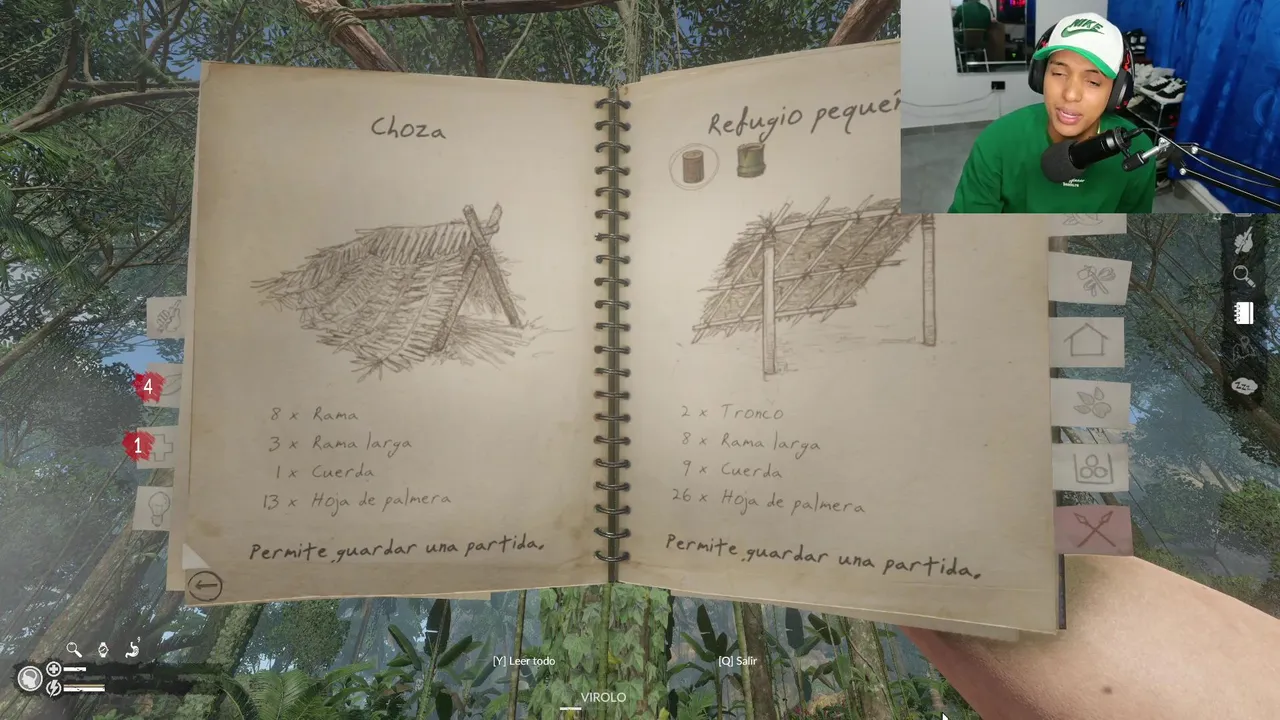 Choza
8 x Rama
3 x Rama larga
1 x Cuerda
13 x Hoja de palmera
Permite guardar una partida.
Refugio pequeñ
2 x Tronco
8 x Rama larga
9 x Cuerda
26 x Hoja de palmera
Permite guardar una partida.
4
1
NIKE
zzz
[Y] Leer todo
[Q] Salir
VIROLO